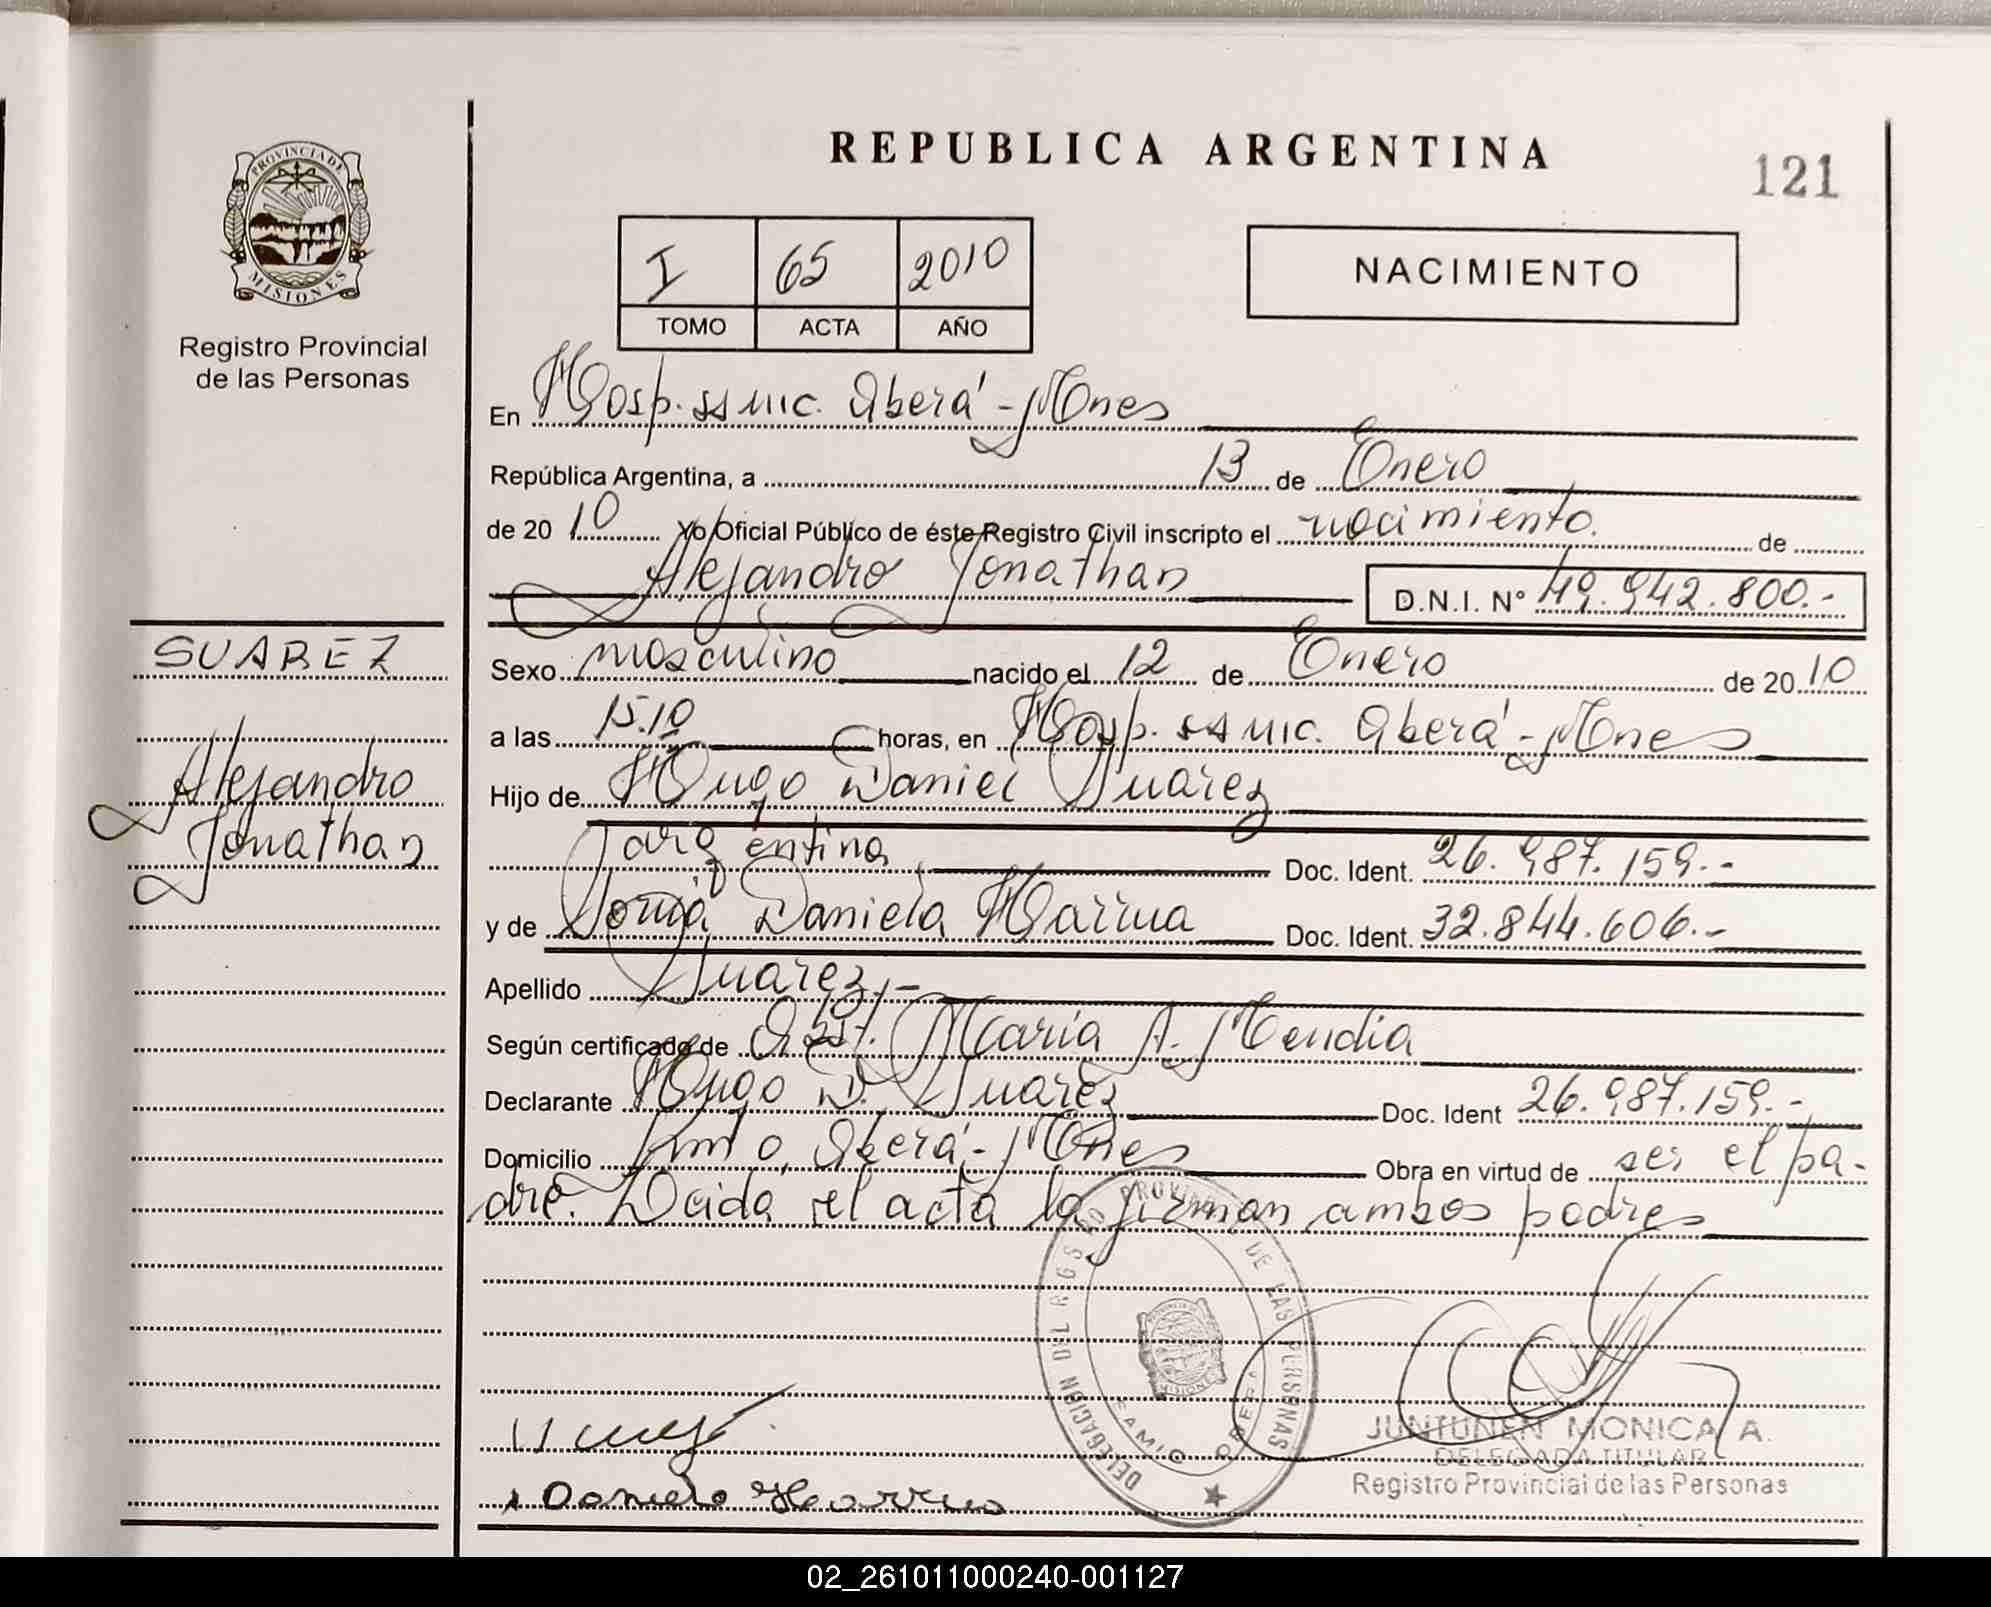 PROVINCIA DE
MISIONES
Registro Provincial
de las Personas
REPUBLICA ARGENTINA
121
I 65 2010
TOMO ACTA AÑO
NACIMIENTO
En Hosp. ss mc. Oberá - Mnes
República Argentina, a 13 de Enero
de 20 10 Yo Oficial Público de éste Registro Civil inscripto el nacimiento. de
Alejandro Jonathan D.N.I. N° 49.942.800.-
SUAREZ
Alejandro
Jonathan
Sexo masculino nacido el 12 de Enero de 20 10
a las 15.10 horas, en Hosp. ss mc. Oberá - Mnes
Hijo de Hugo Daniel Suarez
argentina Doc. Ident. 26.987.159.-
y de Sonia Daniela Doc. Ident. 32.844.606.-
Apellido Suarez.-
Según certificado de Obst. María A. Mendia
Declarante Hugo D. Suarez Doc. Ident 26.987.159.-
Domicilio Km 0, Oberá - Mnes Obra en virtud de ser el pa-
dre. Leida el acta la firman ambos padres
DELEGACION DEL REGISTRO PROVINCIAL DE LAS PERSONAS
MISIONES
OBERA
Daniela
JUNTUNEN MONICA A.
DELEGADA TITULAR
Registro Provincial de las Personas
02_261011000240-001127